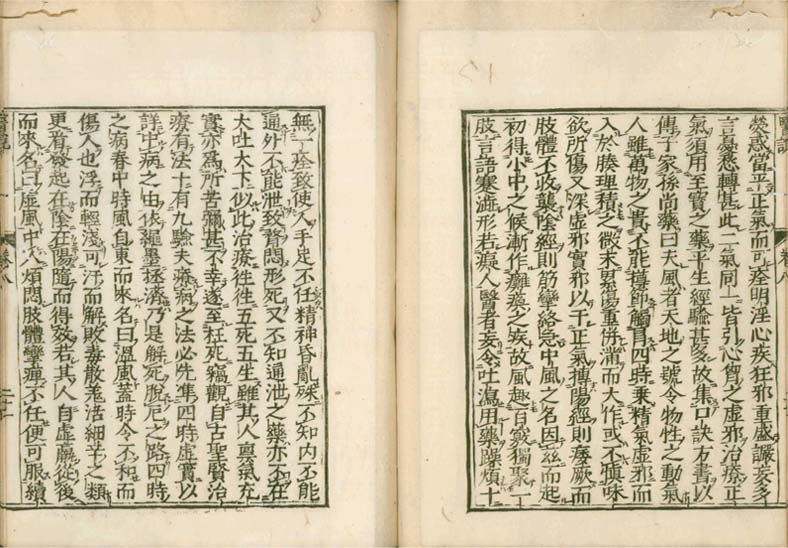 醫說
卷八
熒惑當平正氣而可痊明淫心疾狂邪重盛譫妄多
言憂愁轉甚此二氣同上皆引心胷之虛邪治療正
氣須用至寶之藥平生經驗甚多故集口訣方書以
傳子家孫尚藥曰夫風者天地之號令物性之動氣
人雖萬物之貴不能撙節觸冒四時乗精氣虛邪而
入於腠理積之微末累傷重併滿而大作或不慎味
欲所傷又深虛邪實邪以干正氣搏陽經則瘈厥而
肢體不收襲陰經則筋攣絡急中風之名因茲而起
初得小中之候漸作癱瘓之疾故風趣百竅獨聚一
肢言語蹇澁形若癡人醫者妄令吐瀉用藥躁煩十
無一痊致使人手足不任精神昏亂殊不知内不能
通外不能泄致瞀悶形死又不知通泄之藥亦不在
大吐大下似此治療徃徃五死五生雖其人稟氣充
實亦為所苦彌甚不幸遂至枉死竊觀自古聖賢治
療有法十有九驗夫療病之法必先準四時虛實以
詳中病之由依繩墨拯濟乃是解死脫厄之路四時
之病春中時風自東而來名曰溫風蓋時令不和而
傷人也浮而輕淺可汗而解敗毒散羗活細辛之類
更看發起在陰在陽隨而得效若其人自虛羸從後
而來名曰虛風中人煩悶肢體攣痺不任便可服續
醫說
卷八